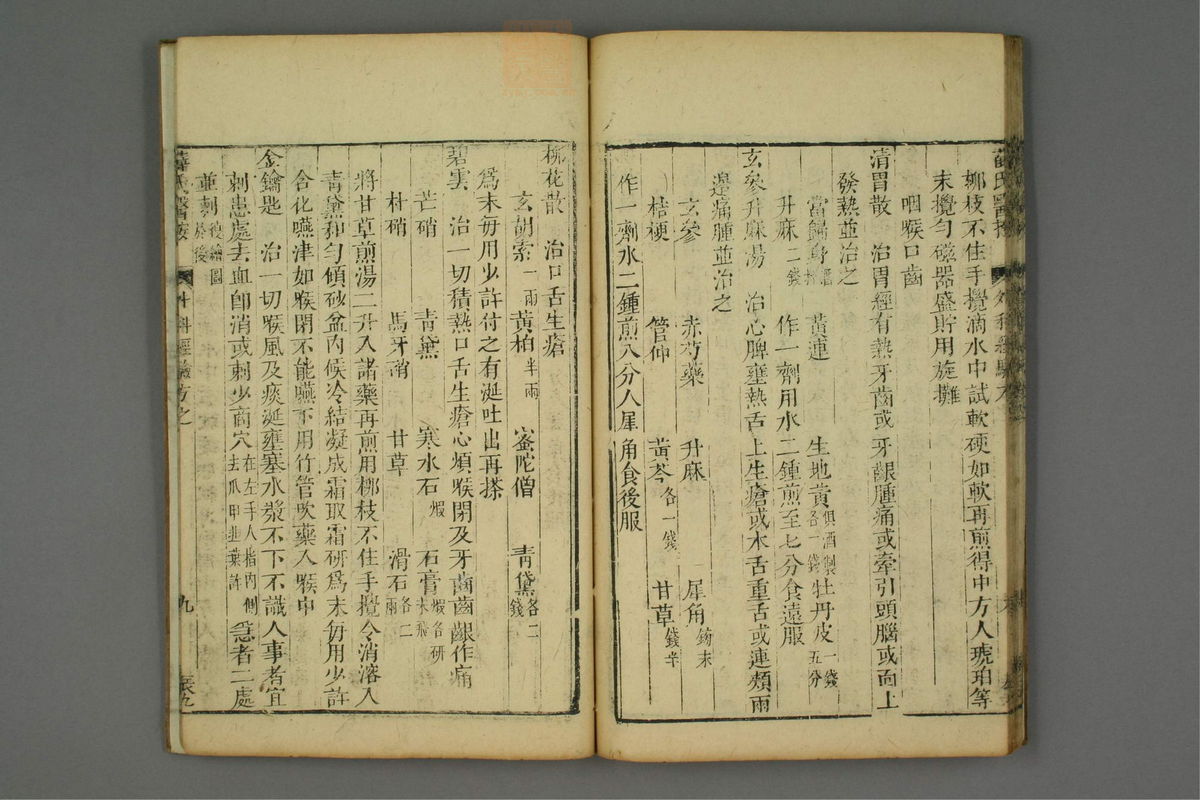 薛氏醫按
外科經驗方
柳枝不住手攪滴水中試軟硬如軟再煎得中方入琥珀等
末攪勻磁器盛貯用旋攤
咽喉口齒
清胃散　治胃經有熱牙齒或牙齦腫痛或牽引頭腦或面上
發熱並治之
當歸身　黃連　生地黃俱酒製各一錢　牡丹皮一錢五分
升麻二錢　作一劑用水二鍾煎至七分食遠服
玄參升麻湯　治心脾壅熱舌上生瘡或木舌重舌或連頰兩
邊痛腫並治之
玄參　赤芍藥　升麻　犀角鎊末
桔梗　管仲　黃芩各一錢　甘草錢半
作一劑水二鍾煎八分入犀角食後服
柳花散　治口舌生瘡
玄胡索一兩　黃柏半兩　蜜陀僧　青黛各二錢
爲末每用少許付之有涎吐出再搽
碧雲　治一切積熱口舌生瘡心煩喉閉及牙齒齒齦作痛
芒硝　青黛　寒水石煆　石膏煆各研末飛
朴硝　馬牙硝　甘草　滑石各二兩
將甘草煎湯二升入諸藥再煎用柳枝不住手攪令消溶入
青黛和勻傾砂盆內候冷結凝成霜取霜研爲末每用少許
含化嚥津如喉閉不能嚥下用竹管吹藥入喉中
金鑰匙　治一切喉風及痰涎壅塞水漿不下不識人事者宜
刺患處去血即消或刺少商穴在左手大指內側去爪甲韭葉許　急者二處
並刺後繪圖於後
薛氏醫按
外科經驗方之
九